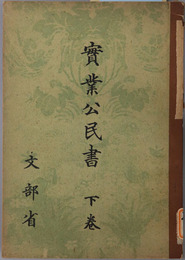 實業公民書 下巻
文部省